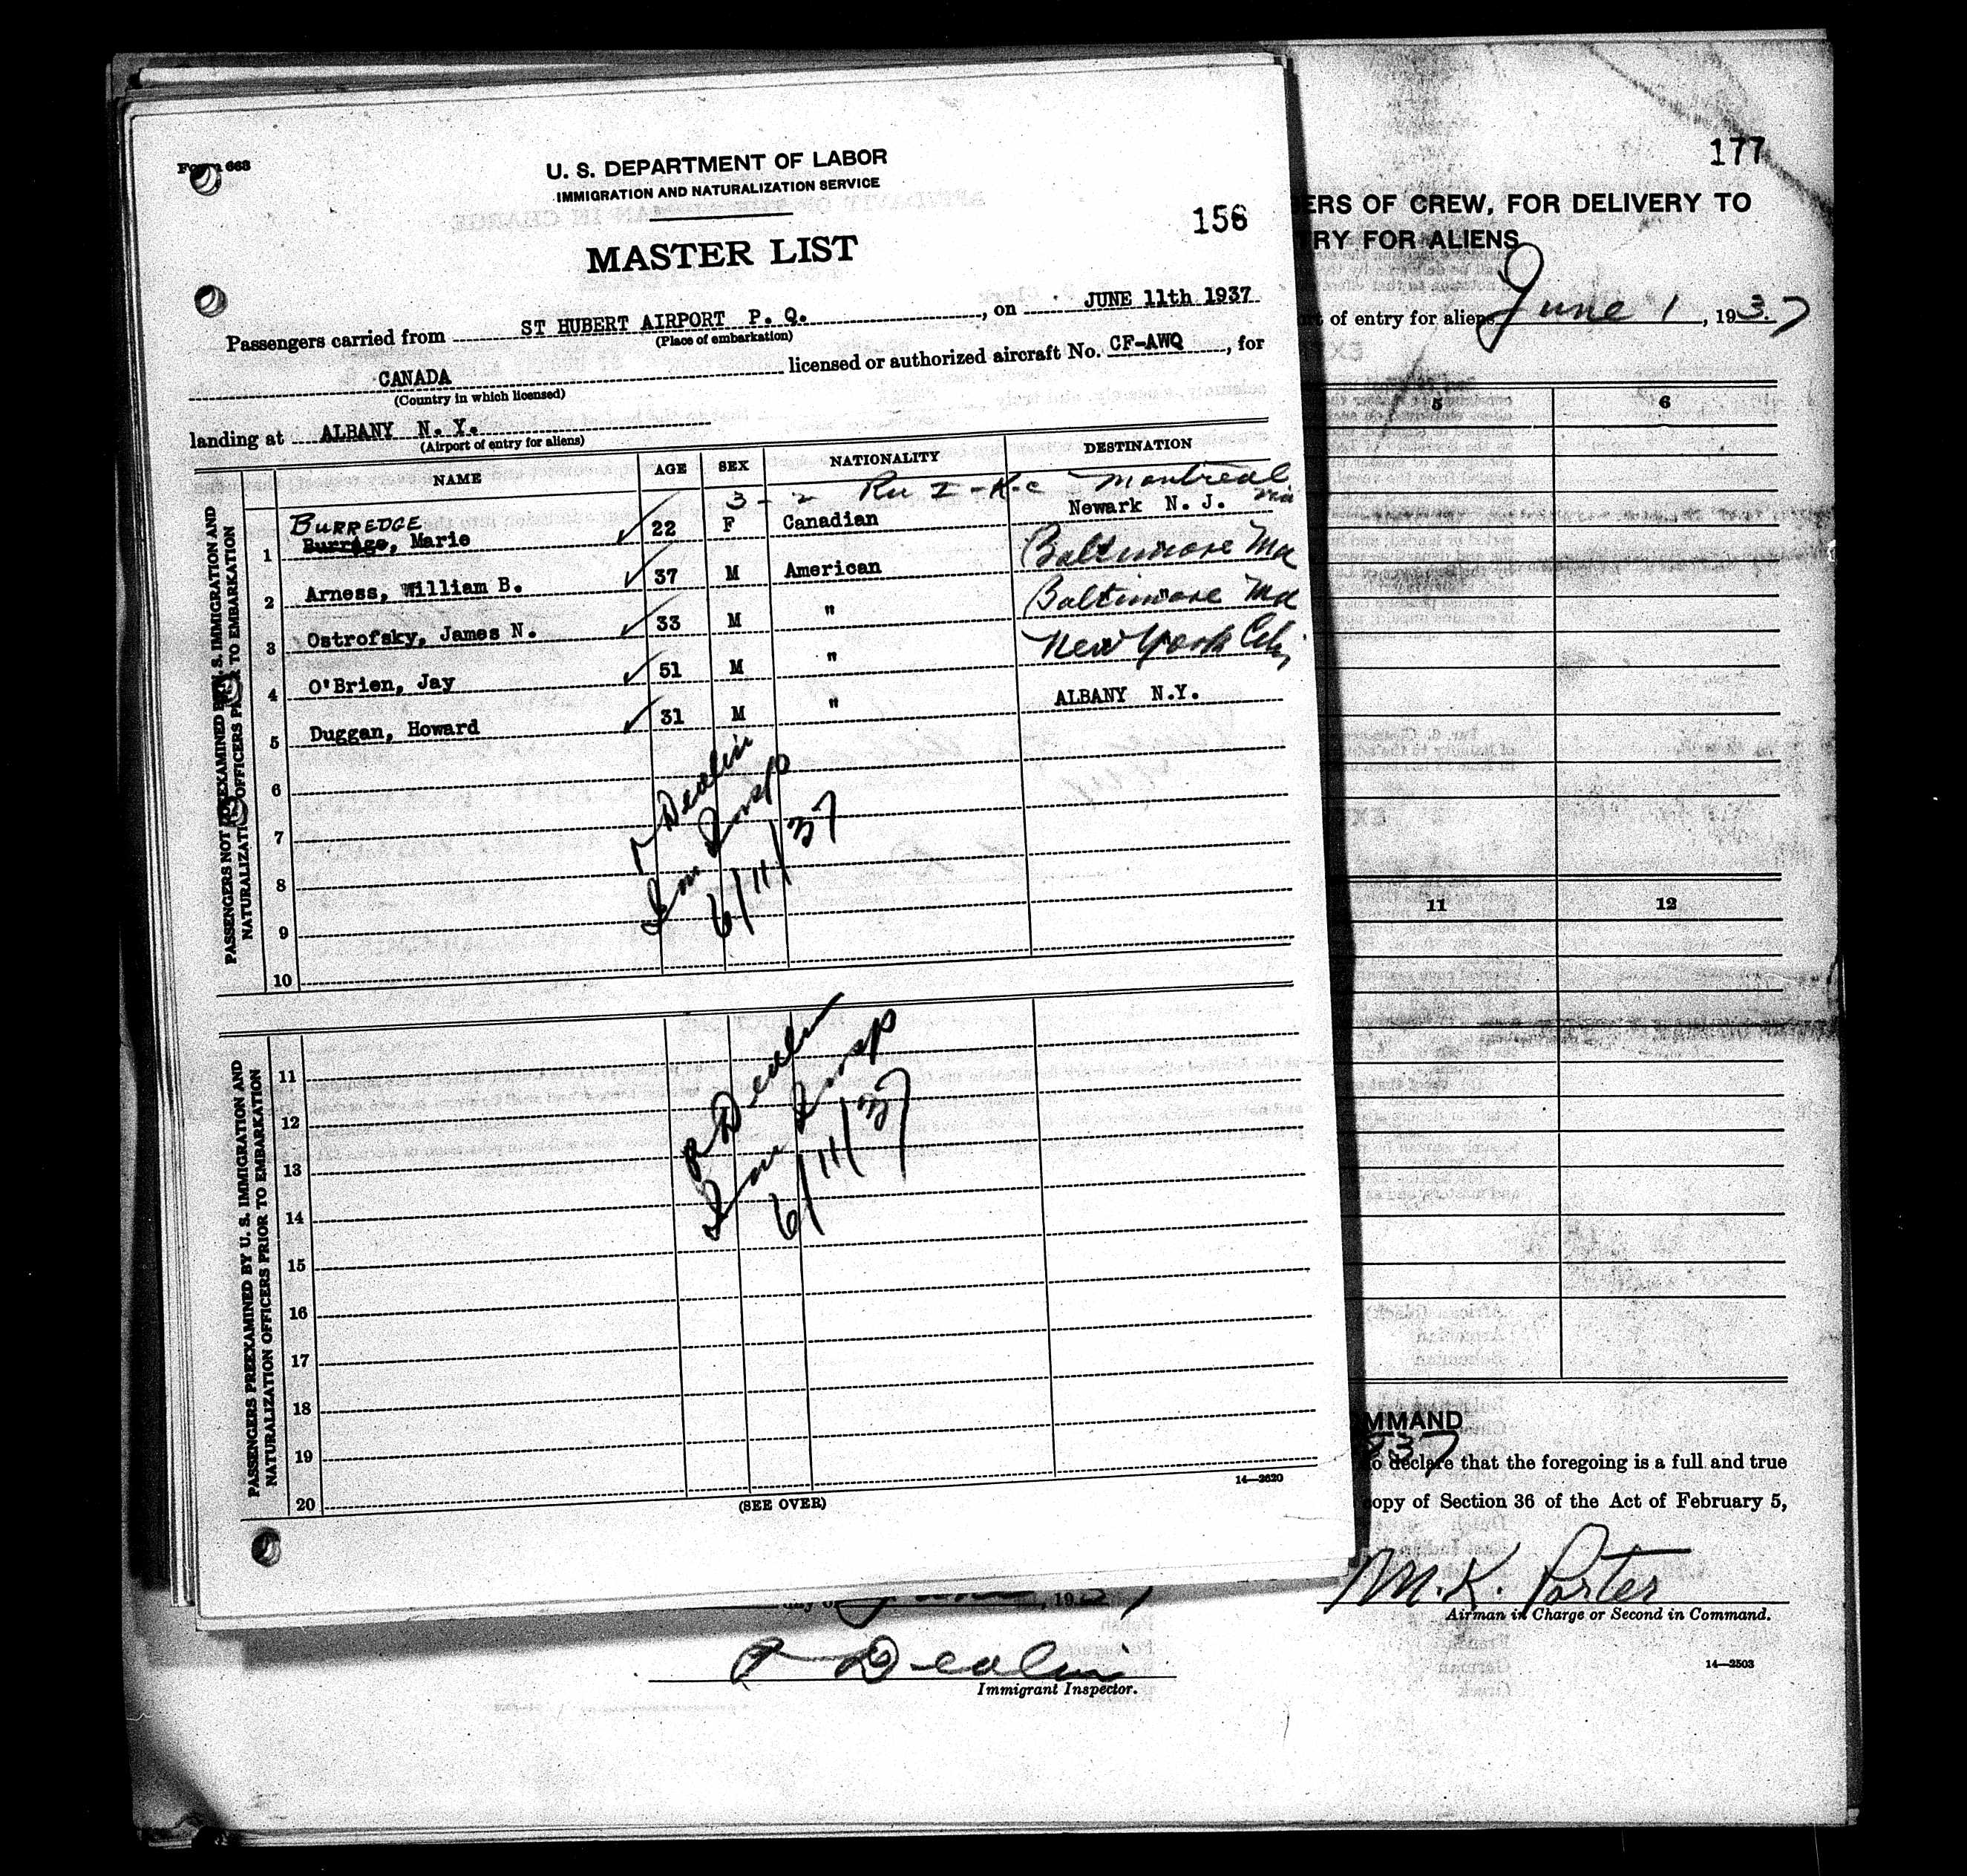 Form 663
U. S. DEPARTMENT OF LABOR
IMMIGRATION AND NATURALIZATION SERVICE
156
MASTER LIST
Passengers carried from ST HUBERT AIRPORT P. Q., on JUNE 11th 1937
(Place of embarkation)
CANADA licensed or authorized aircraft No. CF-AWQ, for
(Country in which licensed)
landing at ALBANY N. Y.
(Airport of entry for aliens)
NAME AGE SEX NATIONALITY DESTINATION
3 - 2 Montreal
BURREDGE
1 Burrage, Marie 22 F Canadian Newark N. J. via
2 Arness, William B. 37 M American Baltimore Md
3 Ostrofsky, James N. 33 M " Baltimore Md
4 O'Brien, Jay 51 M " New York City
5 Duggan, Howard 31 M " ALBANY N.Y.
6
7
8
9
10
Devlin
Imm Insp
6/11/37
PASSENGERS NOT PREEXAMINED BY U. S. IMMIGRATION AND
NATURALIZATION OFFICERS PRIOR TO EMBARKATION
11
12
13
14
15
16
17
18
19
20
Devlin
Imm Insp
6/11/37
PASSENGERS PREEXAMINED BY U. S. IMMIGRATION AND
NATURALIZATION OFFICERS PRIOR TO EMBARKATION
(SEE OVER)
14—2620
177
ERS OF CREW, FOR DELIVERY TO
RY FOR ALIENS
of entry for aliens June 1, 1937
5 6
11 12
MMAND
declare that the foregoing is a full and true
copy of Section 36 of the Act of February 5,
M. K. Porter
Airman in Charge or Second in Command.
14—2503
Devlin
Immigrant Inspector.